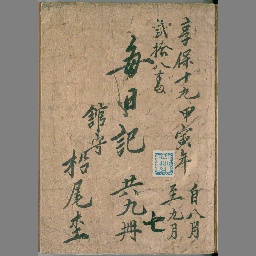 享保十九甲寅年
自八月
至九月
弐拾八番
毎日記
共九冊
七
館守
栲尾杢